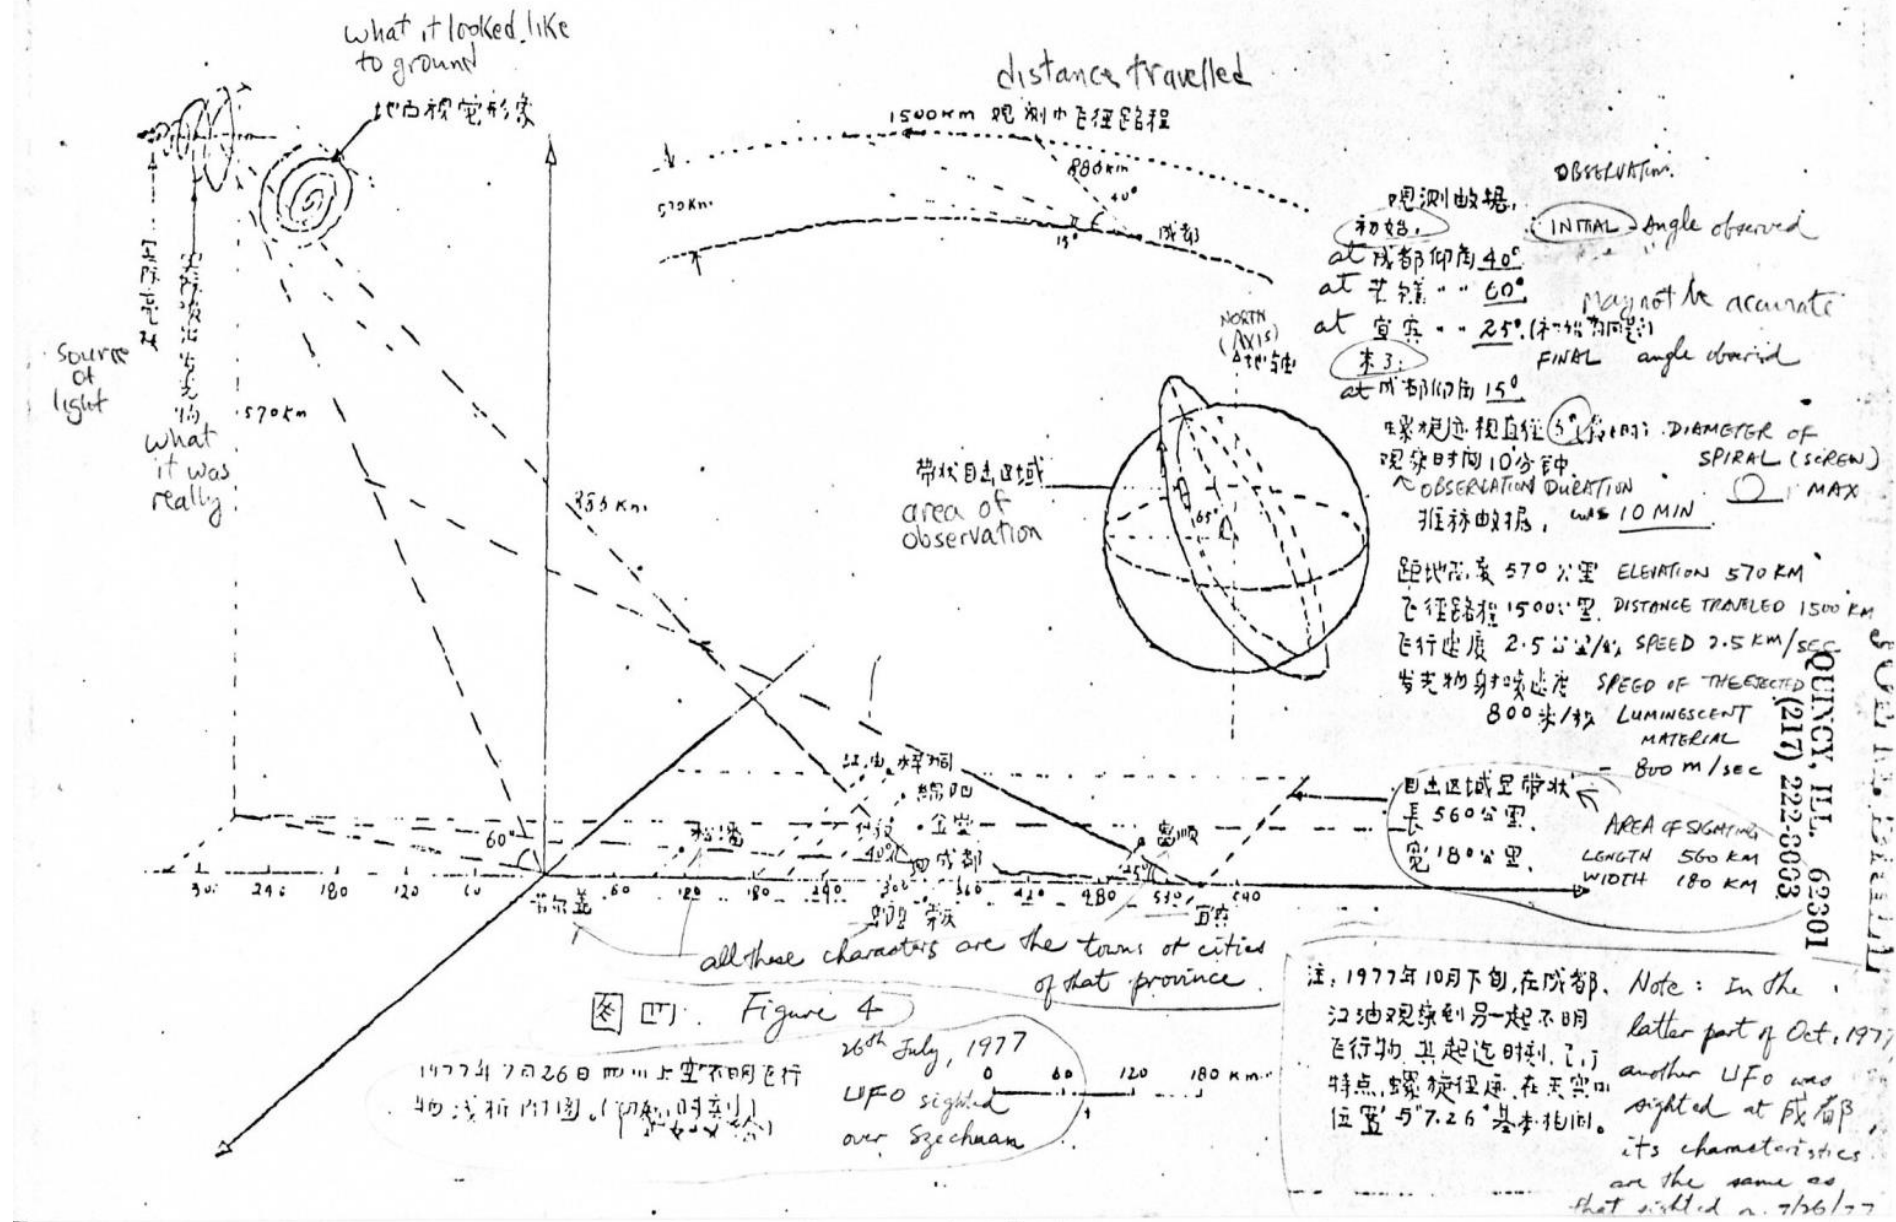 what it looked like
to ground
地面视觉形象
source
of
light
实际亮球
实际喷出发光物
what
it was
really
570km
distance travelled
1500km 观测中飞径路程
886km
40°
570km.
15°
成都
OBSERVATION.
观测数据.
初始. INITIAL - Angle observed
at 成都仰角 40°
at " " 60°
may not be accurate
at 宜宾 " " 25°.
FINAL angle observed
at 成都仰角 15°
螺旋迹视直径 5° DIAMETER OF
SPIRAL (SCREW)
MAX
观察时间 10分钟.
OBSERVATION DURATION
was 10 MIN
推荐数据.
距地高度 570公里 ELEVATION 570 KM
飞径路程 1500公里. DISTANCE TRAVELED 1500 KM
飞行速度 2.5公里/秒 SPEED 2.5 KM/SEC
发光物射喷速度 SPEED OF THE EJECTED
800米/秒 LUMINESCENT
MATERIAL
- 800 m/sec
目击区域呈带状
長 560公里.
宽 180公里.
AREA OF SIGHTING
LENGTH 560 KM
WIDTH 180 KM
QUINCY, ILL. 62301
(217) 222-8003
NORTH
(AXIS)
65°
带状目击区域
area of
observation
江油 梓桐
綿阳
松潘
金堂
富顺
60°
40°
成都
25°
300 240 180 120 60
60 120 180 240 300 360 420 480 540
宜宾
all these characters are the towns or cities
of that province.
图四. Figure 4
1977年7月26日四川上空不明飞行
物浅析附图.
26th July, 1977
UFO sighted
over Szechuan
0 60 120 180 Km.
注: 1977年10月下旬, 在成都.
江油观察到另一起不明
飞行物. 其起迄时刻. 飞行
特点. 螺旋径迹. 在天空中
位置与"7.26"基本相同。
Note: In the
latter part of Oct. 1977,
another UFO was
sighted at 成都
its characteristics
are the same as
that sighted on 7/26/77